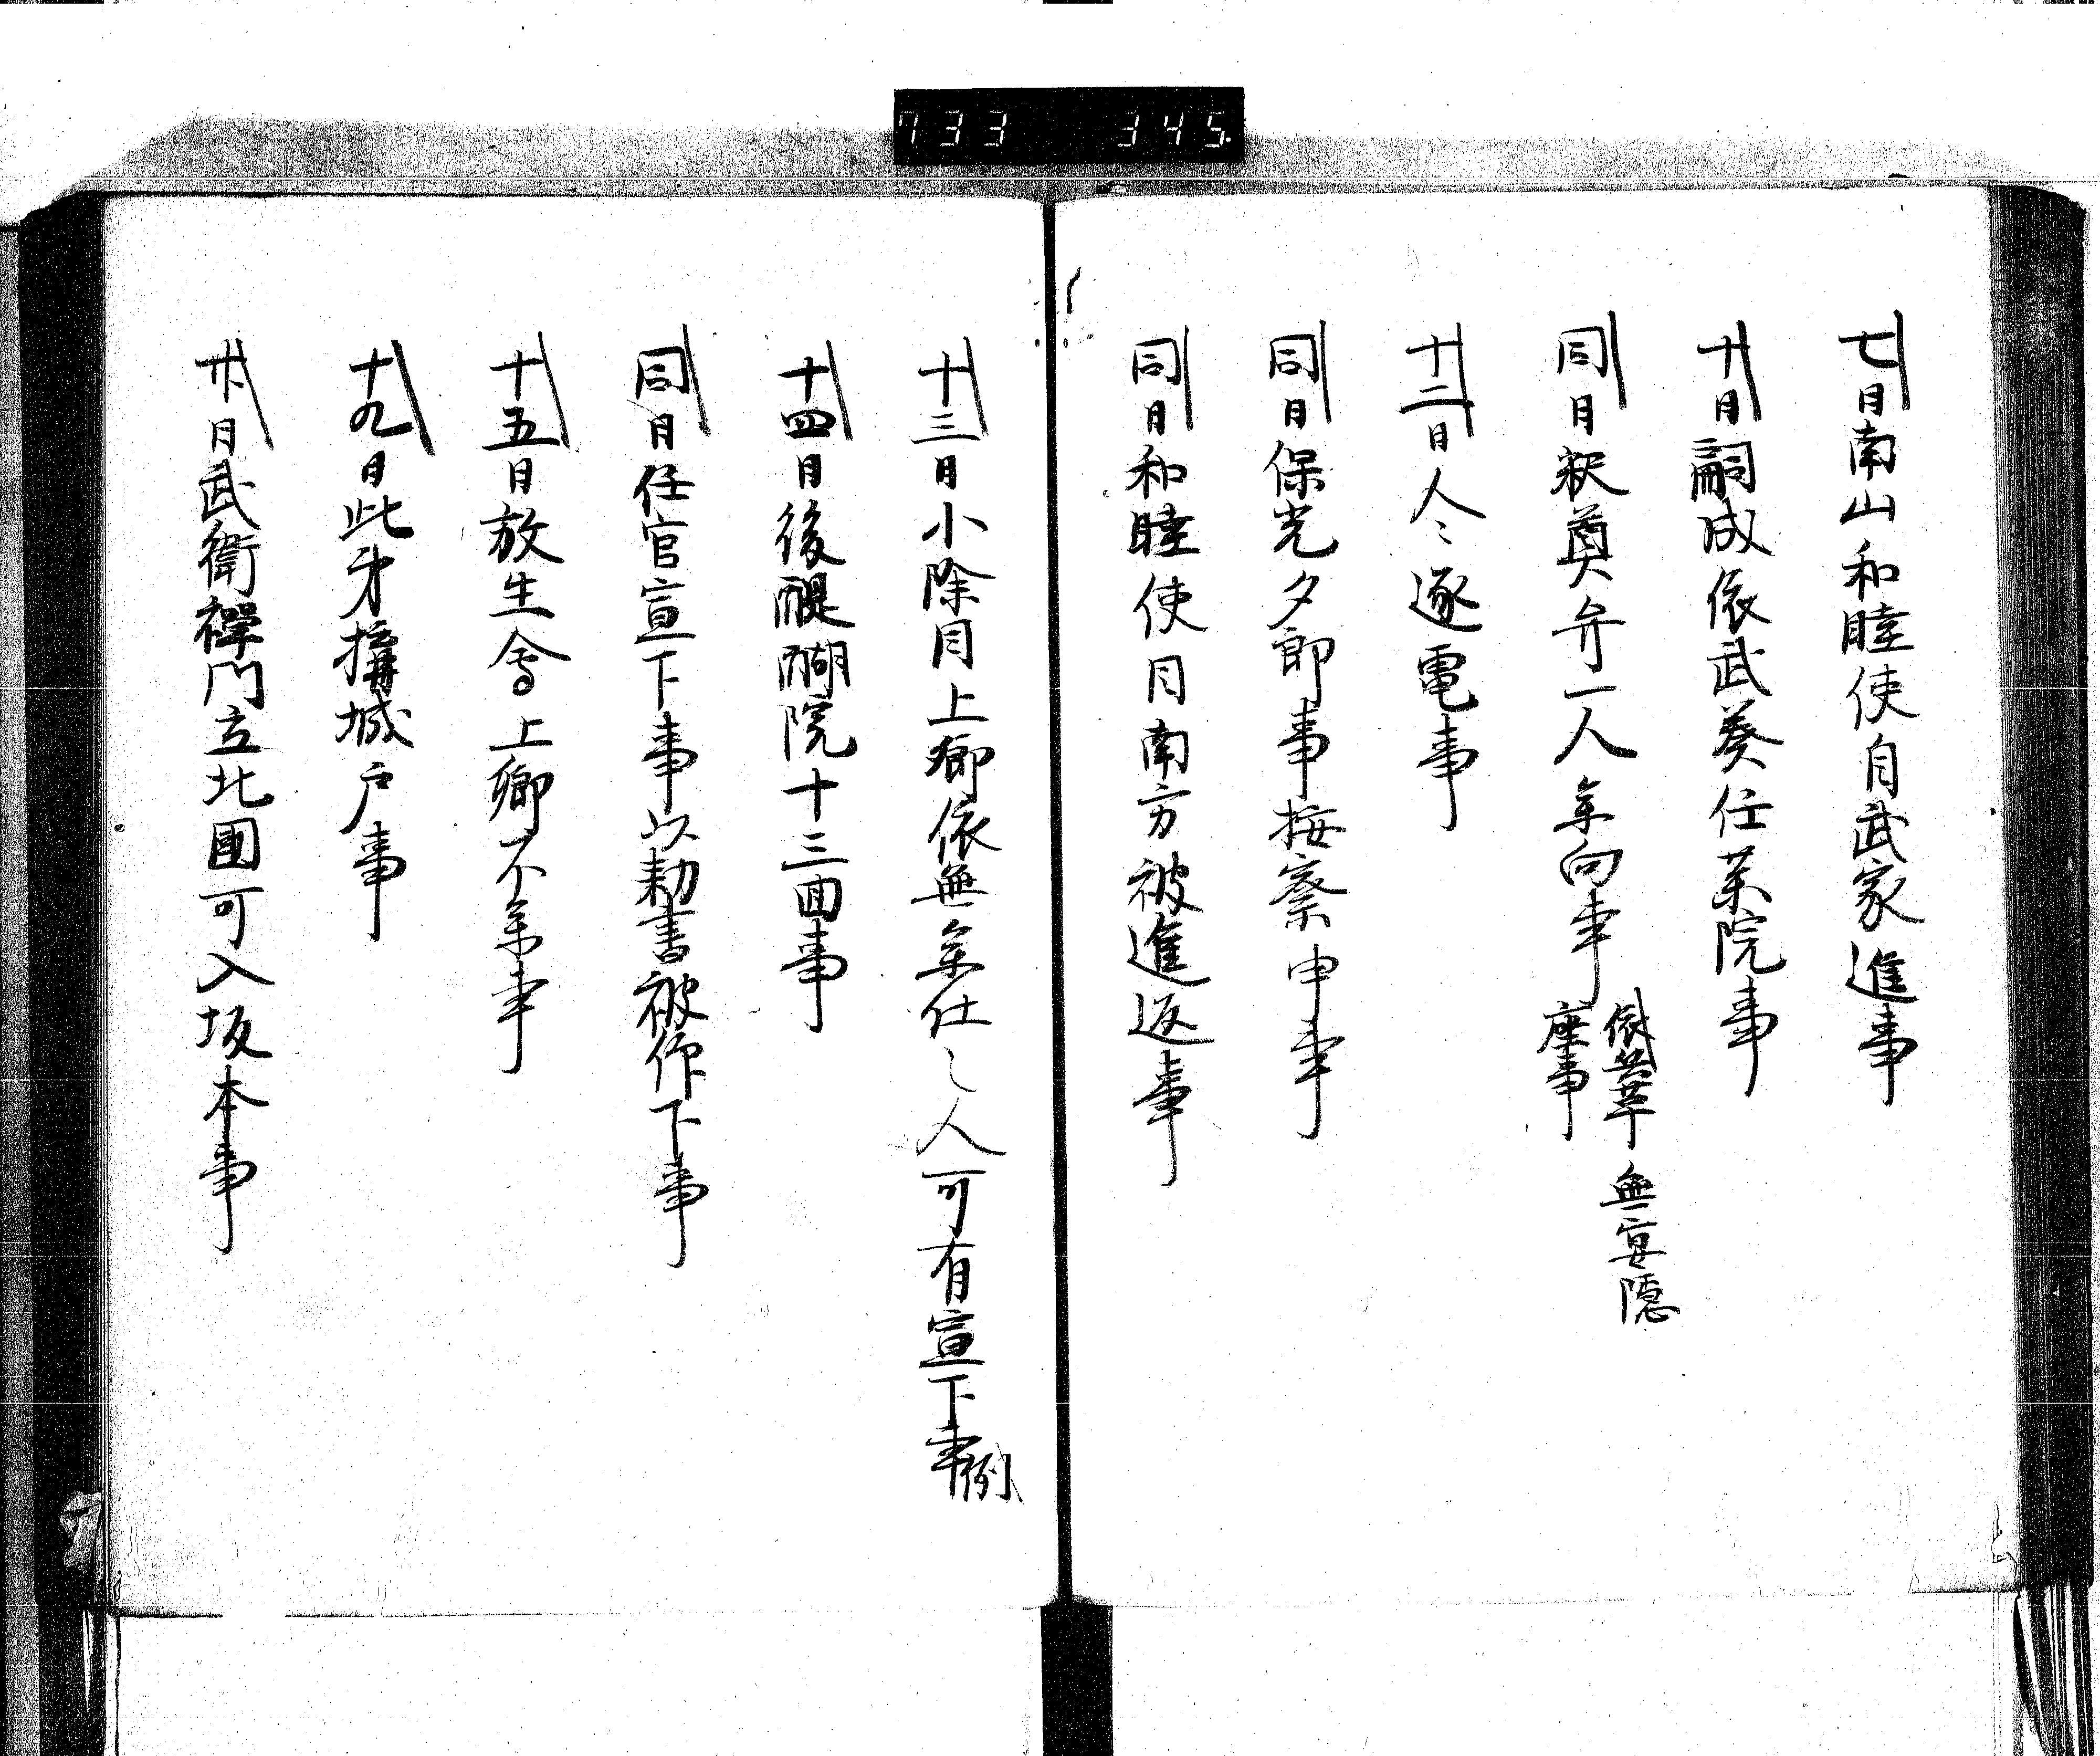 733 345
七日南山和睦使自武家進事
十日嗣成依武葵任某院事
同日釈奠弁一人参向事
無宴隠
座事
十二日人々逐電事
同日保光夕郎事按察申事
同日和睦使日南方被進返事
十三日小除目上卿依無参仕之人可有宣下事例
十四日後醍醐院十三回事
同日任官宣下事以勅書被仰下事
十五日放生会上卿不参事
十九日此才搆城戸事
廿日武衛禅門立北国可入坂本事